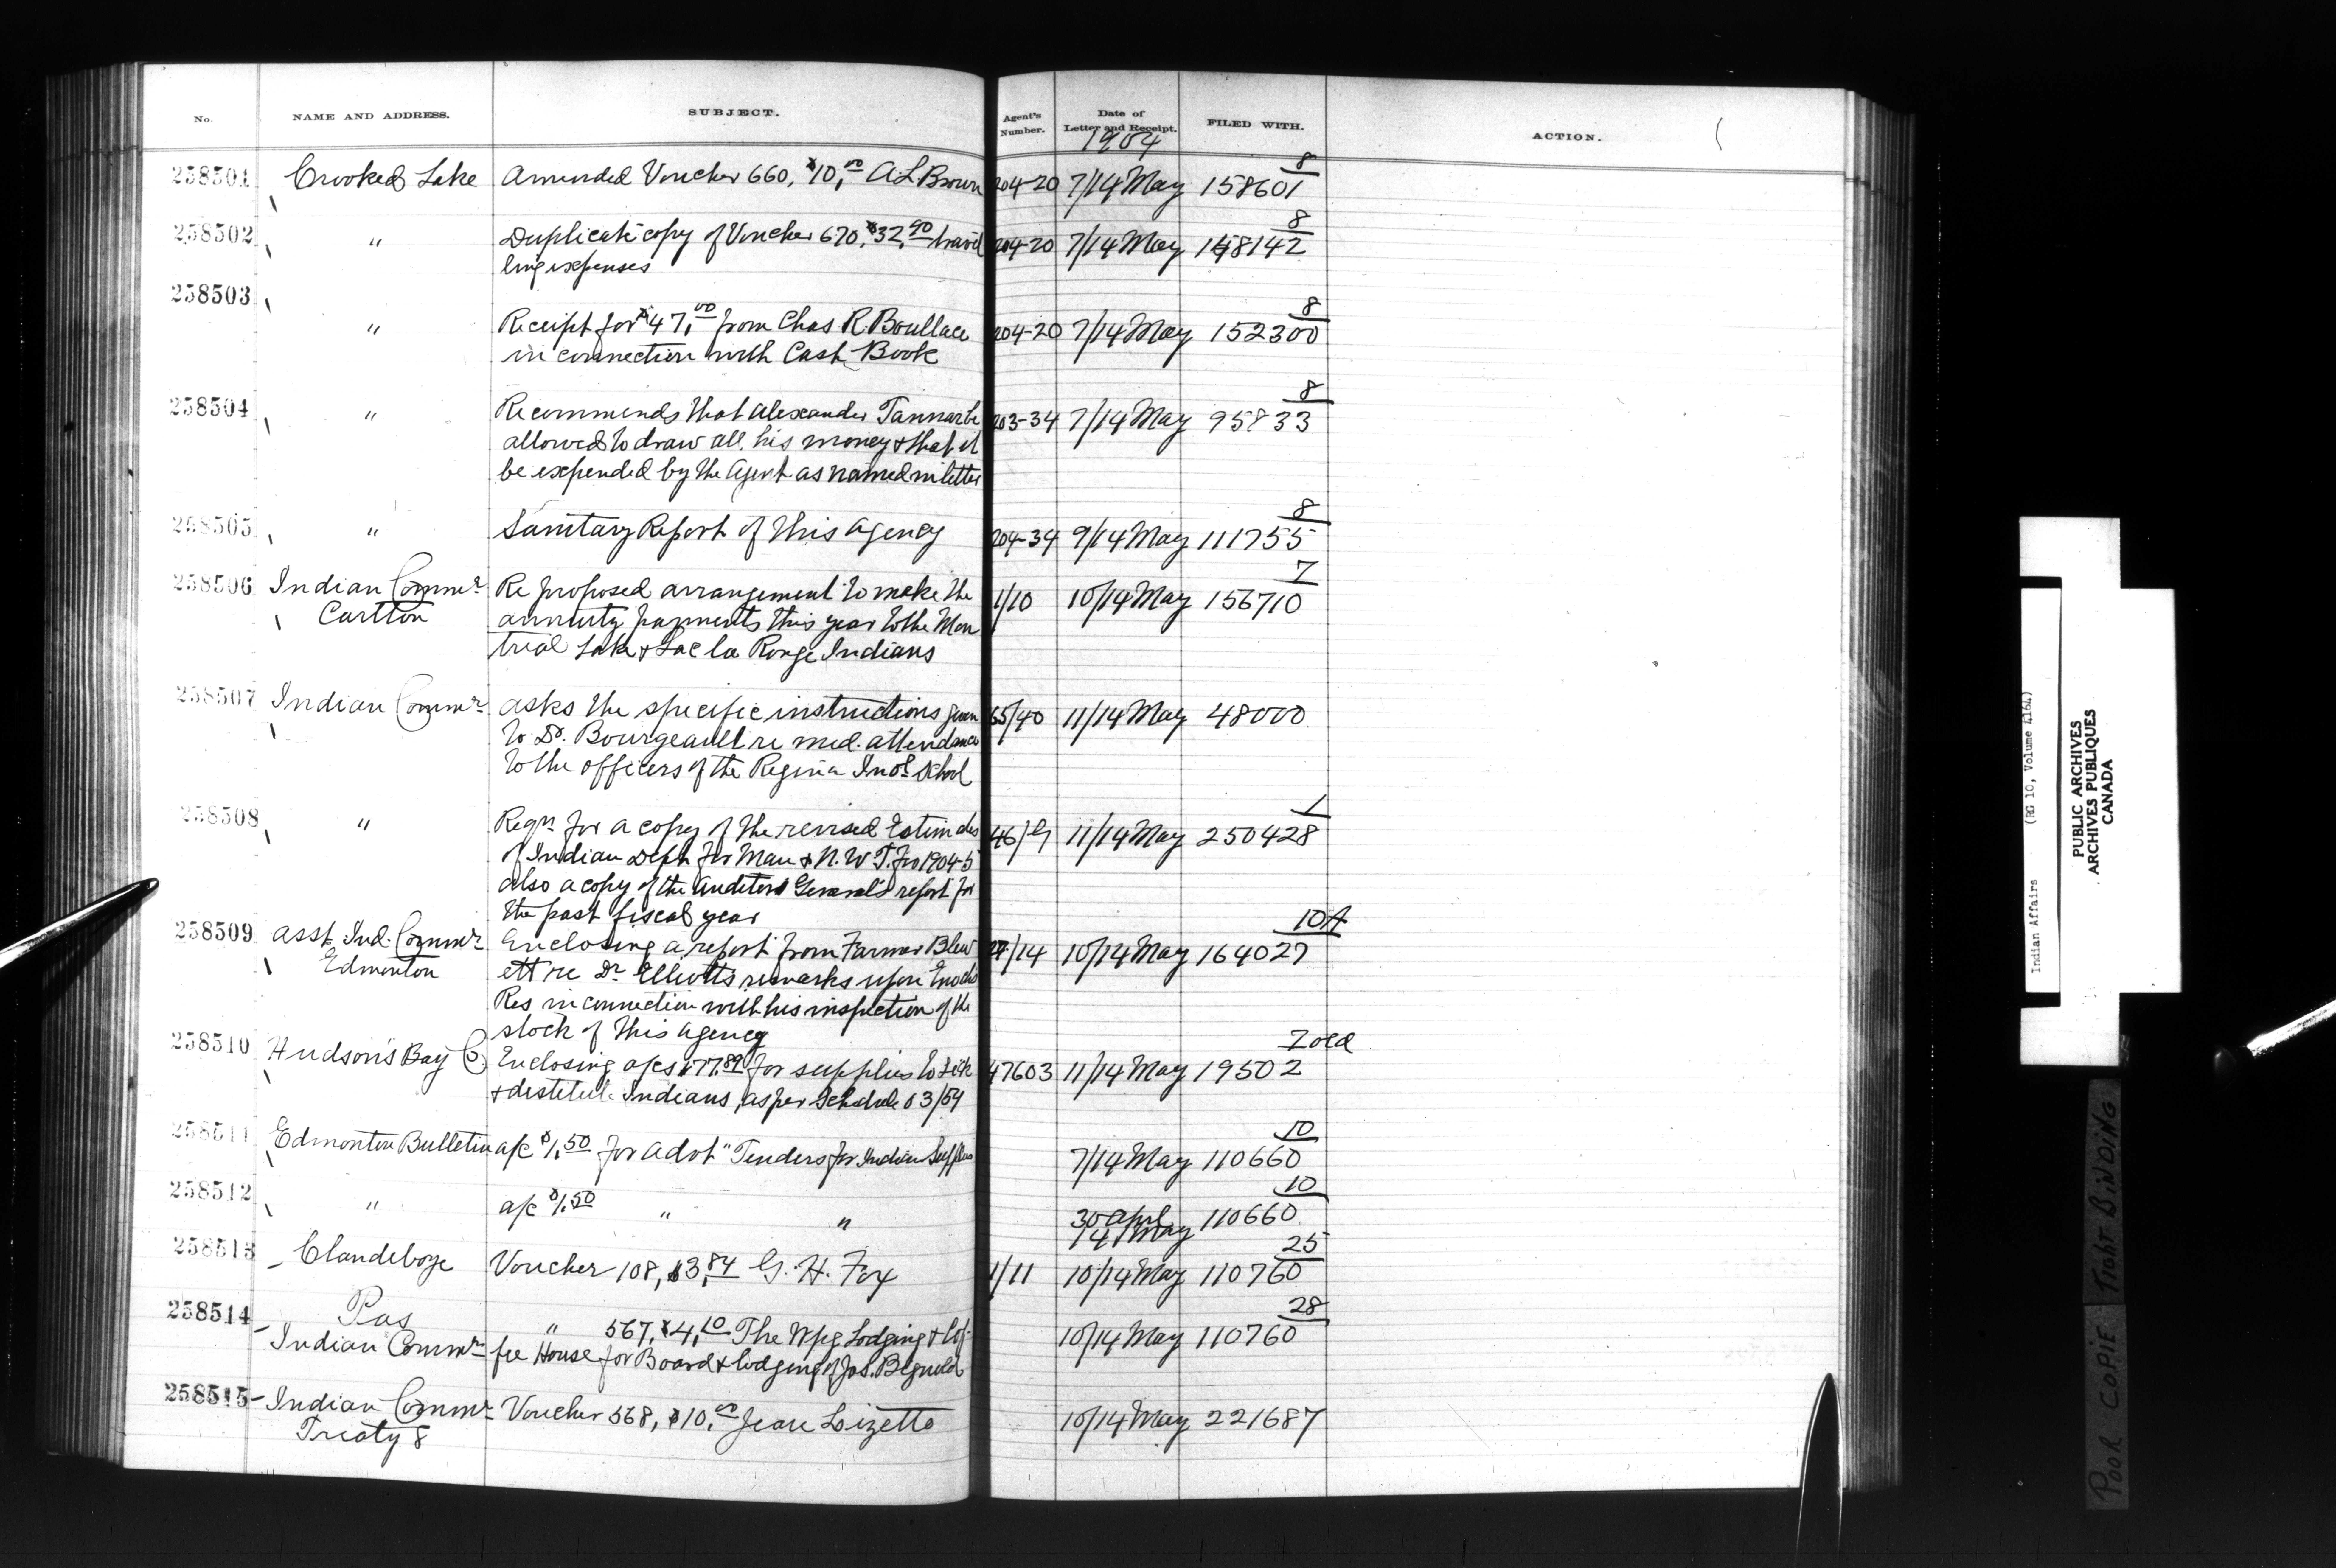 No. NAME AND ADDRESS. SUBJECT. Agent's Number. Date of Letter and Receipt. FILED WITH. ACTION.
1904
8
258501 Crooked Lake Amended Voucher 660, $10,00 A L Brown 204-20 7/14 May 158601
8
258502 " Duplicate copy of Voucher 670, $32,90 travel 204-20 7/14 May 148142
ling expenses
258503
8
" Receipt for $47,00 from Chas R. Boullace 204-20 7/14 May 152300
in connection with Cash Book
8
258504 " Recommends that Alexander Tannar be 203-34 7/14 May 95833
allowed to draw all his money & that it
be expended by the Agent as named in letter
8
258505 " Sanitary Report of this Agency 204-34 9/14 May 111755
7
258506 Indian Commr Re proposed arrangement to make the 1/10 10/14 May 156710
Carlton annuity payments this year to the Mon
treal Lake & Lac la Ronge Indians
258507 Indian Commr Asks the specific instructions given 65/40 11/14 May 48000
to Dr. Bourgeault re med. attendance
to the officers of the Regina Indl School
1
258508 " Reqn for a copy of the revised Estimates 46/ 11/14 May 250428
of Indian Dept for Man & N.W.T. for 1904-5
also a copy of the Auditor General's report for
the past fiscal year
10A
258509 Asst. Ind. Commr Enclosing a report from Farmer Blew /14 10/14 May 164027
Edmonton ett re Dr Elliott's remarks upon Enoch's
Res in connection with his inspection of the
stock of this Agency
7 old
258510 Hudson's Bay Co. Enclosing a/cs $77.89 for supplies to Sick 47603 11/14 May 19502
& destitute Indians, as per Schedule 03/04
10
258511 Edmonton Bulletin a/c $1,50 for Advt "Tenders for Indian Supplies 7/14 May 110660
10
258512 " a/c $1.50 " " 30 April 110660
14 May
25
258513 Clandeboye Voucher 108, $3,84 G. H. Fox 1/11 10/14 May 110760
28
258514 Pas " 567, $4,10 The Wpg Lodging & Cof- 10/14 May 110760
Indian Commr fee House for Board & lodging of Jos. Begnold
258515 Indian Commr Voucher 568, $10,00 Jean Lizette 10/14 May 221687
Treaty 8
Indian Affairs (RG 10, Volume 4164)
PUBLIC ARCHIVES
ARCHIVES PUBLIQUES
CANADA
POOR COPIE TIGHT BINDING